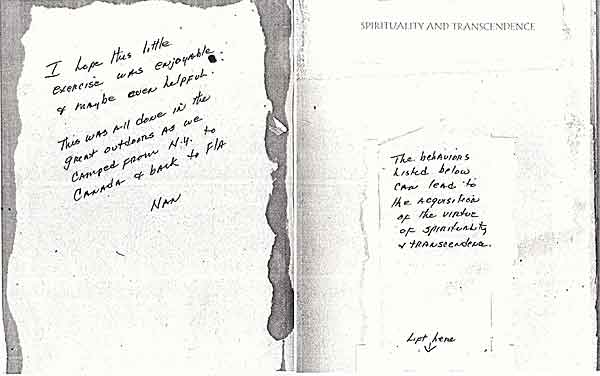 I hope this little
exercise was enjoyable
& maybe even helpful.
This was all done in the
great outdoors as we
camped from N.Y. to
Canada & back to FlA
NAN
SPIRITUALITY AND TRANSCENDENCE
The behaviors
listed below
can lead to
the acquisition
of the virtue
of spirituality
& transcendence.
Lift here